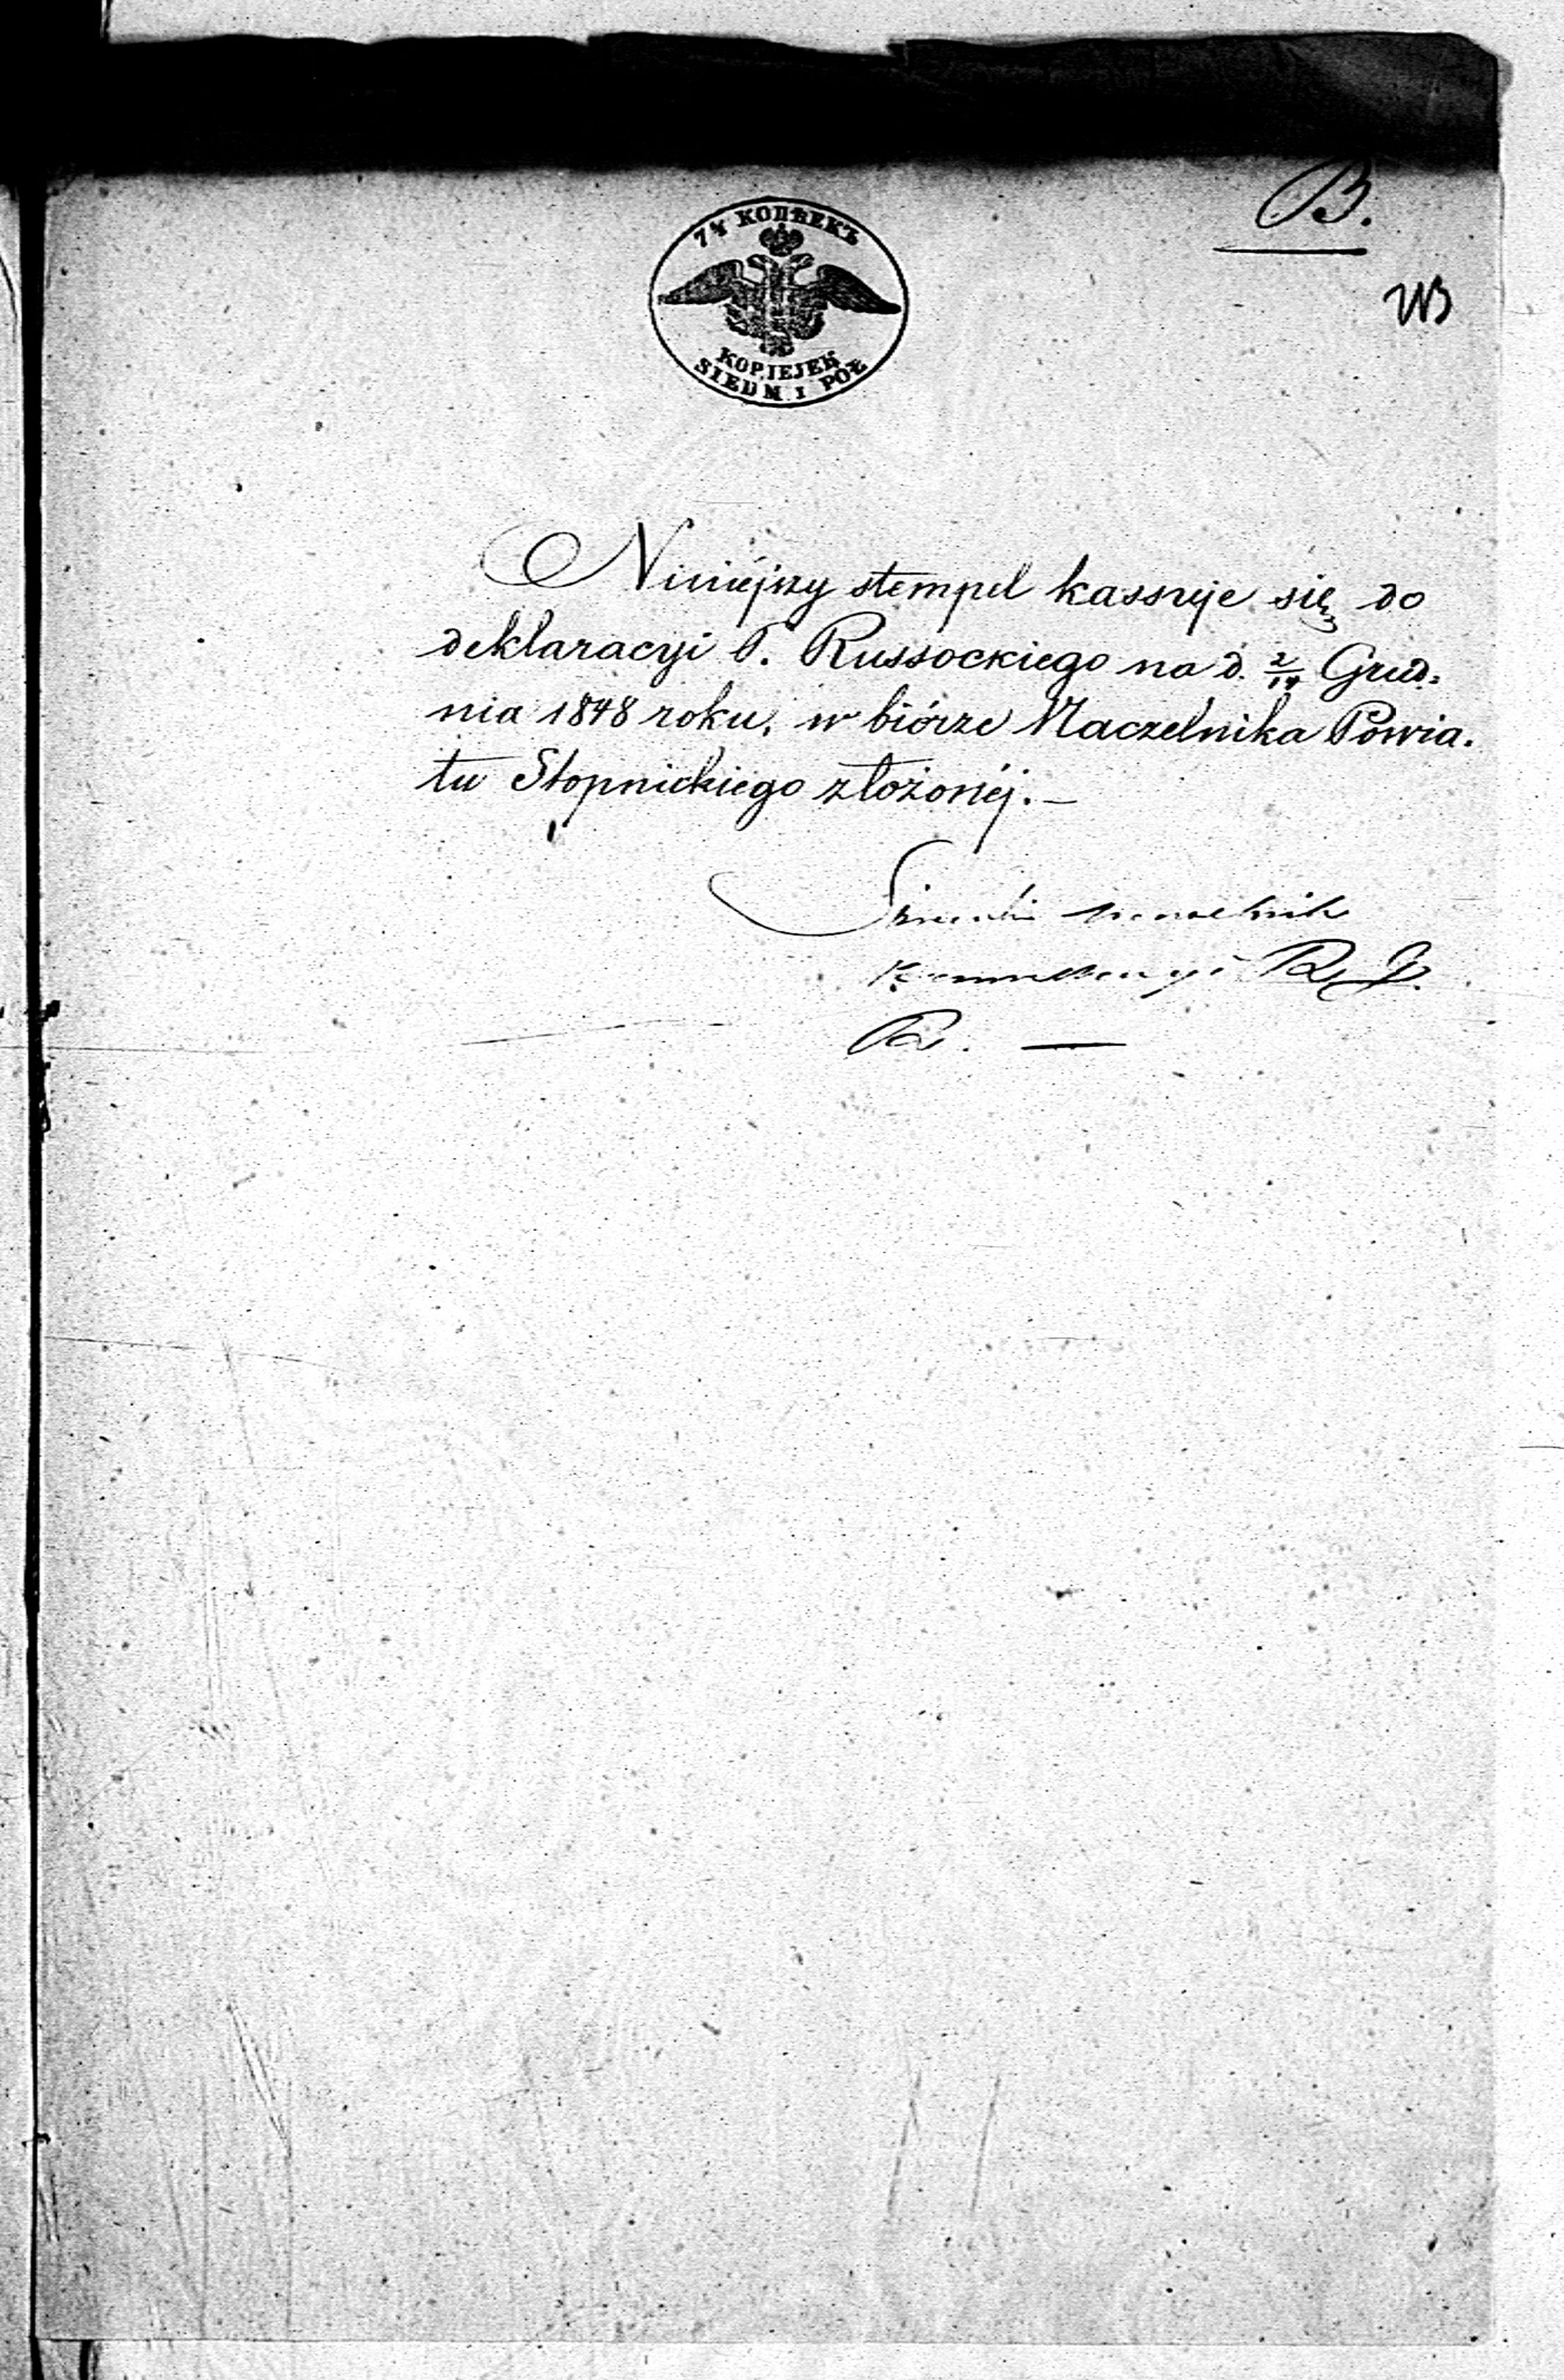 B.
7½ КОПѢЕКЪ
KOPIEJEK
SIEDM I PÓŁ
Niniéjszy stempel kassuje się do
deklaracyi P. Russockiego na d. 2/14 Grud=
nia 1848 roku, w biórze Naczelnika Powia=
tu Stopnickiego złożonéj. —
Naczelnik
Kommissyi R. J.
R. —